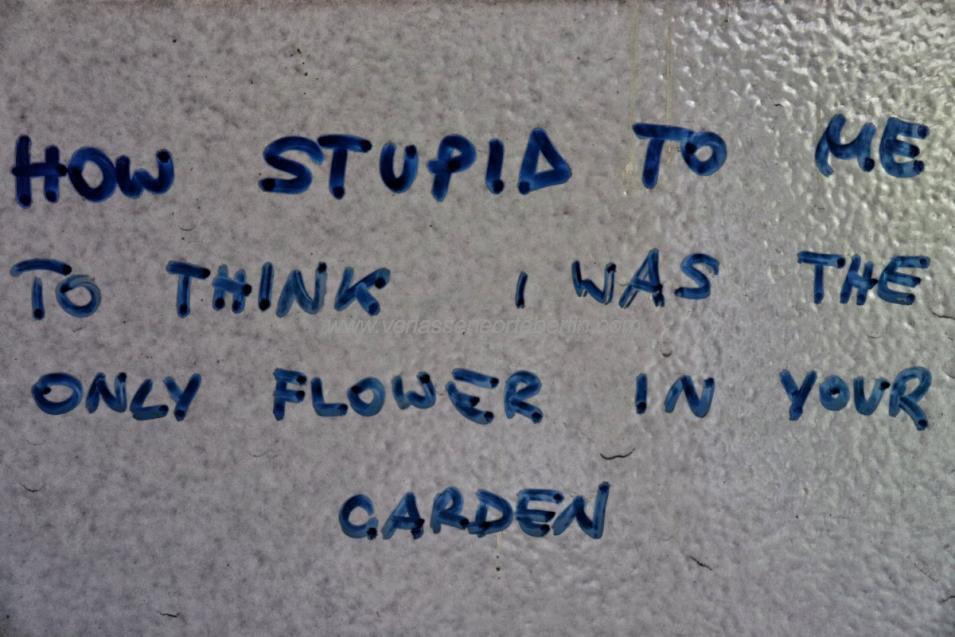 HOW STUPID TO ME
TO THINK I WAS THE
www.verlasseneorteberlin.com
ONLY FLOWER IN YOUR
GARDEN